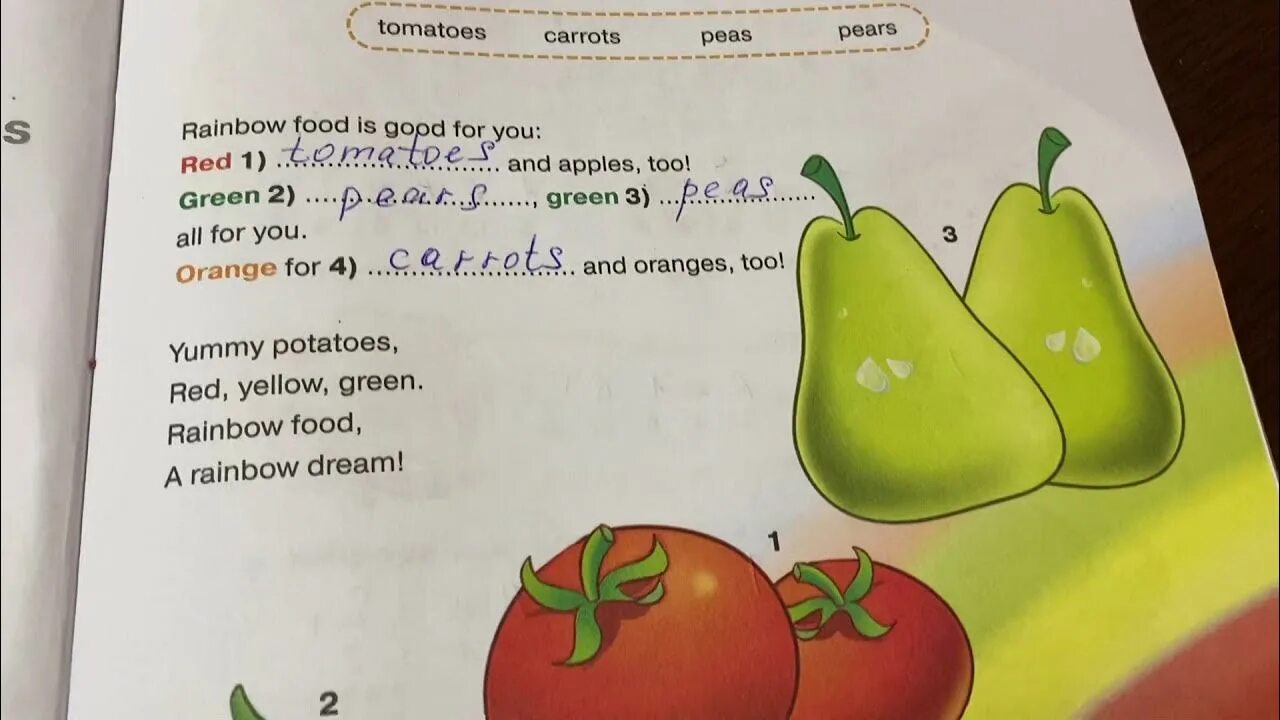 tomatoes carrots peas pears
s
Rainbow food is good for you:
Red 1) tomatoes and apples, too!
Green 2) pears, green 3) peas
all for you.
Orange for 4) carrots and oranges, too!
3
Yummy potatoes,
Red, yellow, green.
Rainbow food,
A rainbow dream!
1
2